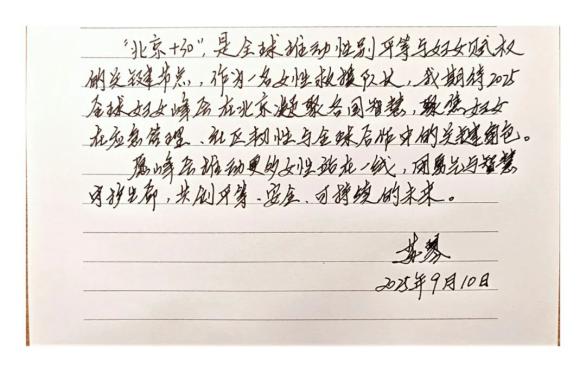 “北京+30”,是全球推动性别平等与妇女赋权
的关键节点,作为一名女性救援队长,我期待2025
全球妇女峰会在北京凝聚各国智慧,聚焦妇女
在应急管理、社区韧性与全球合作中的关键角色。
愿峰会推动更多女性站在一线,用勇气与智慧
守护生命,共创平等、安全、可持续的未来。
2025年9月10日